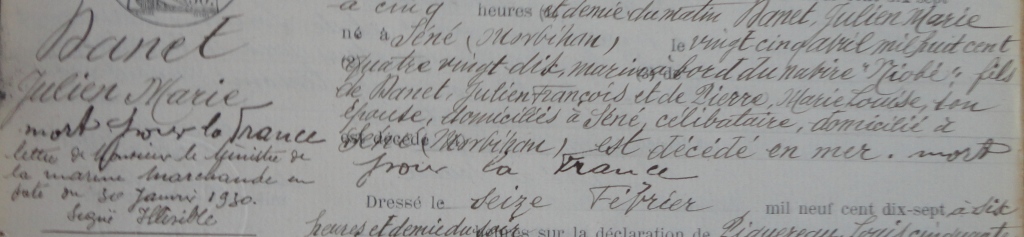 Danet
Julien Marie
mort pour la France
lettre de Monsieur le Ministre de
la marine marchande en
date du 30 Janvier 1930.
Signé Illisible
à cinq heures et demie du matin Danet, Julien Marie
né à Séné (Morbihan) le vingt cinq avril mil huit cent
quatre vingt dix, marin à bord du navire "Niobé": fils
de Danet, Julien François et de Pierre, Marie Louise, son
épouse, domiciliés à Séné, célibataire, domicilié à
(Morbihan), est décédé en mer. mort
pour la France
Dressé le seize Février mil neuf cent dix-sept, à dix
heures et demie du sur la déclaration de Louis cinquante